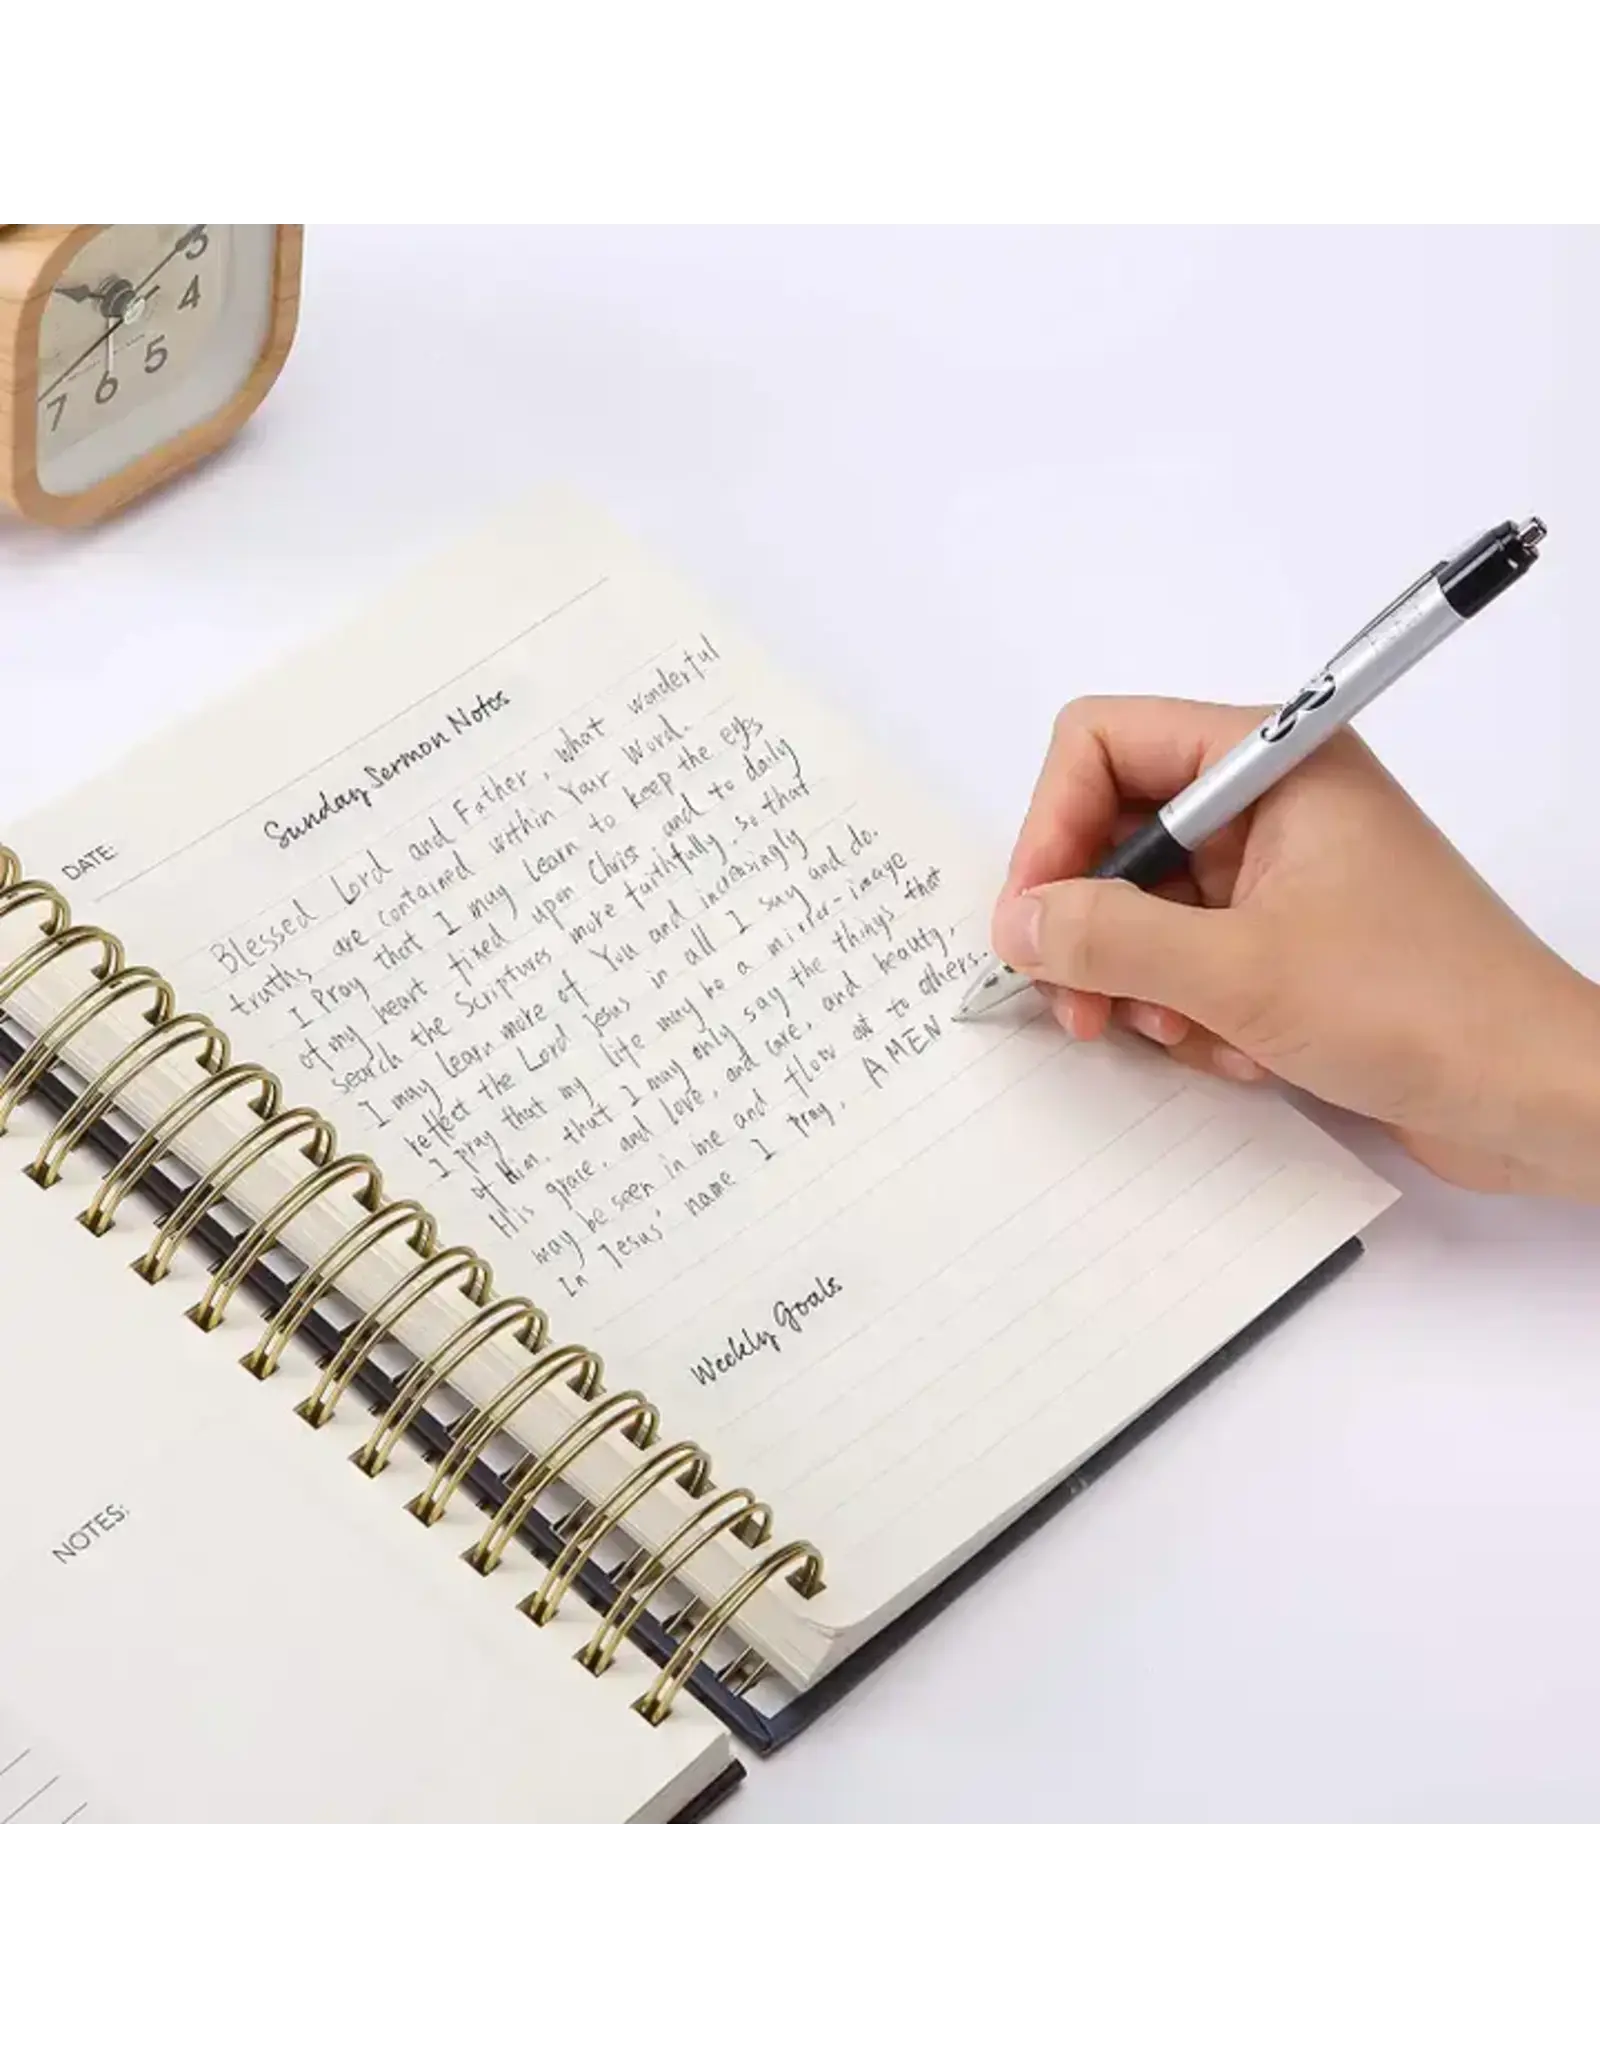 3
4
5
6
7
DATE:
Sunday Sermon Notes
Blessed Lord and Father, what wonderful
truths are contained within Your Word.
I Pray that I may learn to keep the eyes
of my heart fixed upon Christ and to daily
search the Scriptures more faithfully. so that
I may learn more of You and increasingly
reflect the Lord Jesus in all I say and do.
I pray that my life may be a mirror-image
of Him. that I may only say the things that
His grace, and love, and care, and beauty,
may be seen in me and flow out to others.
In Jesus' name I pray, AMEN
Weekly Goals
NOTES: